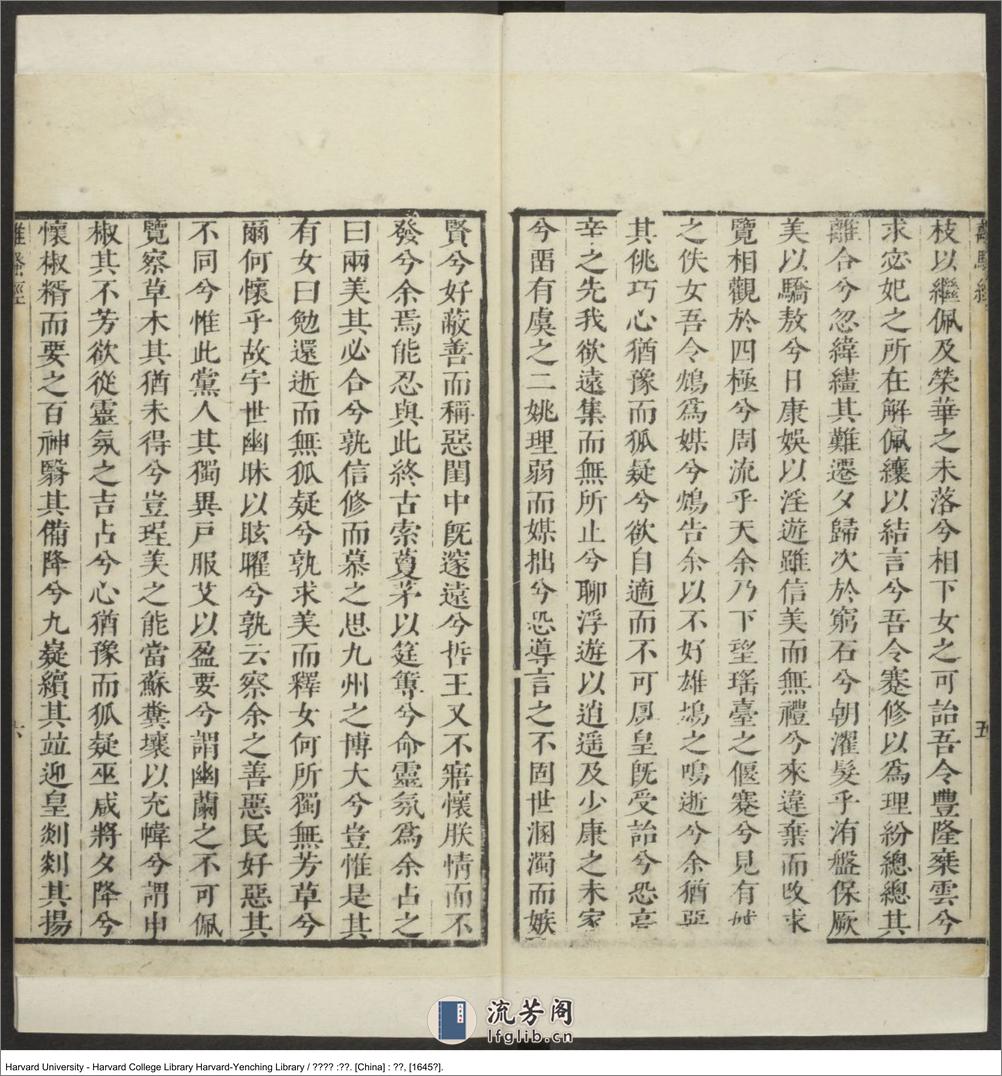 離騷經
五
枝以繼佩及榮華之未落兮相下女之可詒吾令豊隆椉雲兮
求宓妃之所在解佩纕以結言兮吾令蹇修以爲理紛總總其
離合兮忽緯繣其難遷夕歸次於窮石兮朝濯髮乎洧盤保厥
美以驕敖兮日康娛以淫遊雖信美而無禮兮來違棄而改求
覽相觀於四極兮周流乎天余乃下望瑤臺之偃蹇兮見有娀
之佚女吾令鴆爲媒兮鴆告余以不好雄鳩之鳴逝兮余猶惡
其佻巧心猶豫而狐疑兮欲自適而不可鳳皇旣受詒兮恐高
辛之先我欲遠集而無所止兮聊浮遊以逍遥及少康之未家
兮畱有虞之二姚理弱而媒拙兮恐導言之不固世溷濁而嫉
賢兮好蔽善而稱惡閨中旣邃遠兮哲王又不寤懷朕情而不
發兮余焉能忍與此終古索藑茅以筳篿兮命靈氛爲余占之
曰兩美其必合兮孰信修而慕之思九州之博大兮豈惟是其
有女曰勉遠逝而無狐疑兮孰求美而釋女何所獨無芳草兮
爾何懷乎故宇世幽昧以眩曜兮孰云察余之善惡民好惡其
不同兮惟此黨人其獨異戸服艾以盈要兮謂幽蘭之不可佩
覽察草木其猶未得兮豈珵美之能當蘇糞壤以充幃兮謂申
椒其不芳欲從靈氛之吉占兮心猶豫而狐疑巫咸將夕降兮
懷椒糈而要之百神翳其備降兮九嶷續其竝迎皇剡剡其揚
離騷經
六
流芳阁
lfglib.cn
Harvard University - Harvard College Library Harvard-Yenching Library / ???? :??. [China] : ??, [1645?].